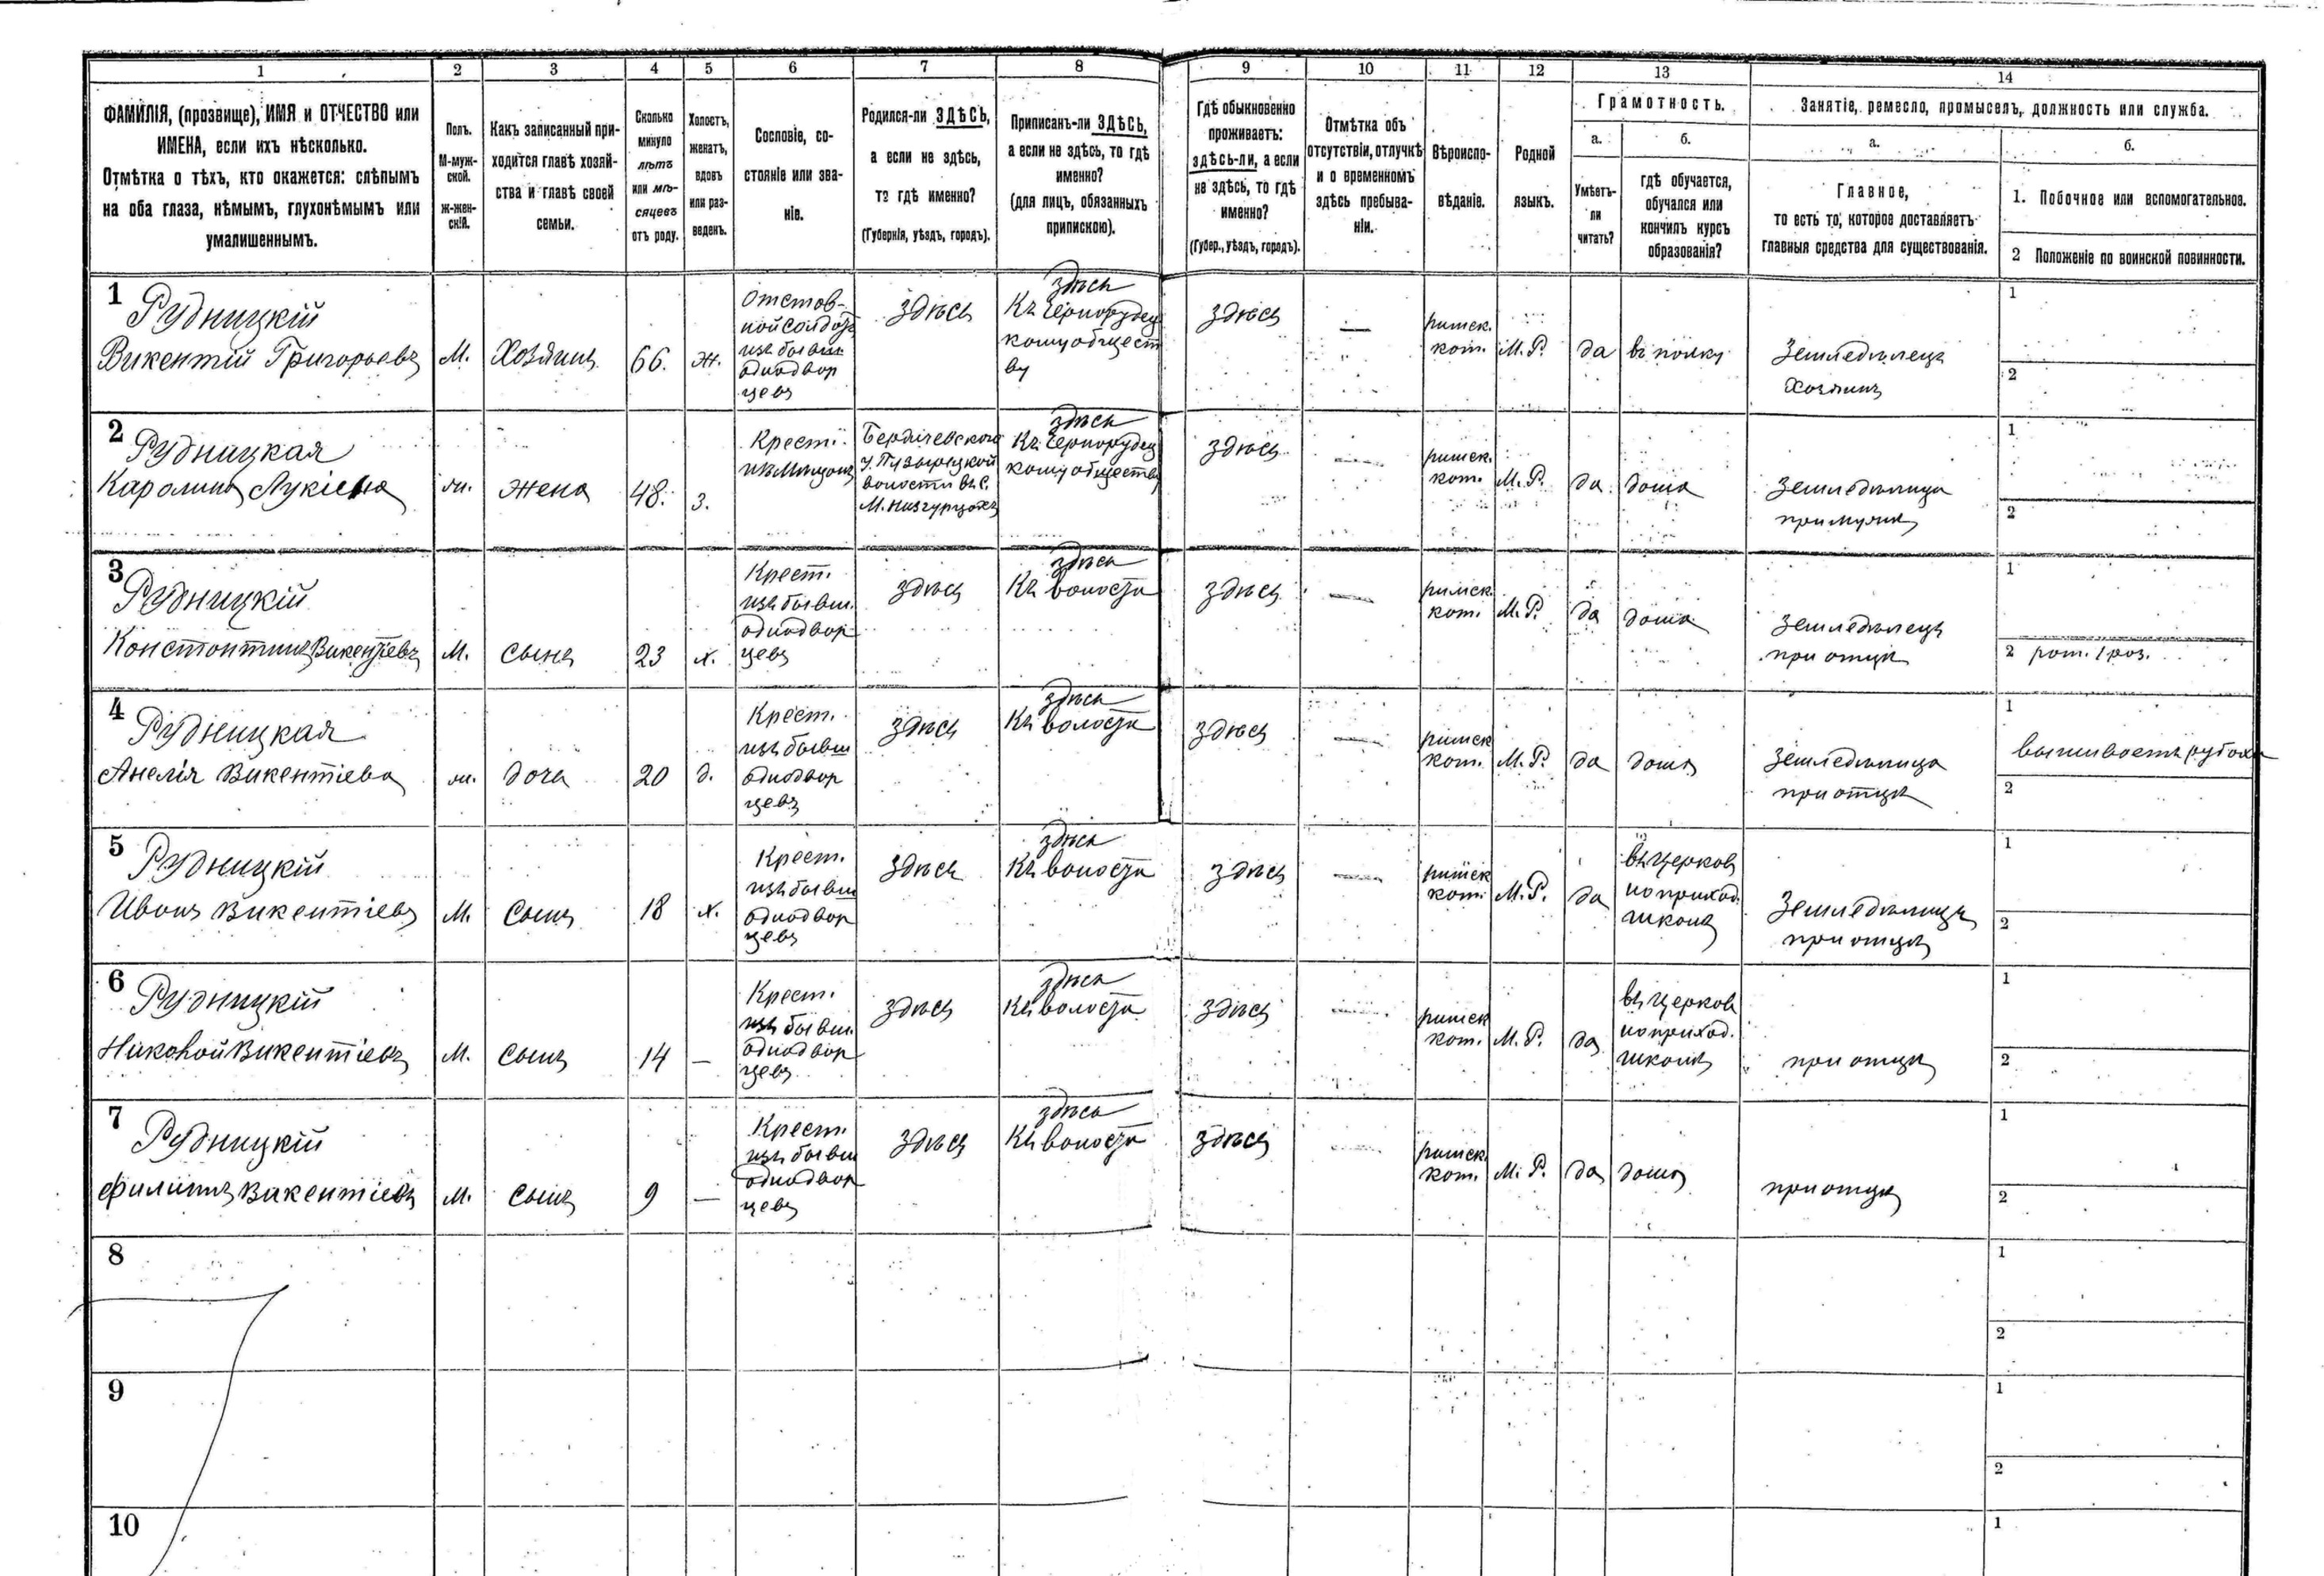 1 2 3 4 5 6 7 8 9 10 11 12 13 14
ФАМИЛІЯ, (прозвище), ИМЯ и ОТЧЕСТВО или
ИМЕНА, если ихъ нѣсколько.
Отмѣтка о тѣхъ, кто окажется: слѣпымъ
на оба глаза, нѣмымъ, глухонѣмымъ или
умалишеннымъ.
Полъ.
М-муж-
ской.
ж-жен-
скій.
Какъ записанный при-
ходится главѣ хозяй-
ства и главѣ своей
семьи.
Сколько
минуло
лѣтъ
или мѣ-
сяцевъ
отъ роду.
Холостъ,
женатъ,
вдовъ
или раз-
веденъ.
Сословіе, со-
стояніе или зва-
ніе.
Родился-ли ЗДѢСЬ,
а если не здѣсь,
то гдѣ именно?
(Губернія, уѣздъ, городъ).
Приписанъ-ли ЗДѢСЬ,
а если не здѣсь, то гдѣ
именно?
(для лицъ, обязанныхъ
припискою).
Гдѣ обыкновенно
проживаетъ:
здѣсь-ли, а если
не здѣсь, то гдѣ
именно?
(Губер., уѣздъ, городъ).
Отмѣтка объ
отсутствіи, отлучкѣ
и о временномъ
здѣсь пребыва-
ніи.
Вѣроиспо-
вѣданіе.
Родной
языкъ.
Грамотность.
а.
Умѣетъ-
ли
читать?
б.
гдѣ обучается,
обучался или
кончилъ курсъ
образованія?
Занятіе, ремесло, промыселъ, должность или служба.
а.
Главное,
то есть то, которое доставляетъ
главныя средства для существованія.
б.
1. Побочное или вспомогательное.
2 Положеніе по воинской повинности.
1
Рудницкій
Викентій Григорьевъ
М.
Хозяинъ
66.
ж.
Отстав-
ной солдатъ
изъ бывш.
однодвор
цевъ
здѣсь
здѣсь
Къ Чернорудец
кому общест
ву
здѣсь
—
римск.
кат.
М. Р.
да
въ полку
Земледѣлецъ
Хозяинъ
1
2
2
Рудницкая
Каролина Лукіева
ж.
жена
48.
з.
Крестъ.
Бердичевского
у. Пузырецкой
волости въ с.
здѣсь
Къ Чернорудец
кому обществу
здѣсь
—
римск.
кат.
М. Р.
да
дома
земледѣлица
при мужѣ
1
2
3
Рудницкій
Константинъ Викентіевъ
М.
сынъ
23
х.
Крест.
изъ бывш.
однодвор
цевъ
здѣсь
здѣсь
Къ волости
здѣсь
—
римск.
кат.
М. Р.
да
дома
земледѣлецъ
при отцѣ
1
2 рат. 1 роз.
4
Рудницкая
Анелія Викентіева
ж.
дочь
20
д.
Крест.
изъ бывш
однодвор
цевъ
здѣсь
здѣсь
Къ волости
здѣсь
—
римск
кат.
М. Р.
да
дома
земледѣлица
при отцѣ
1
вышиваетъ рубахи
2
5
Рудницкій
Иванъ Викентіевъ
М.
Сынъ
18
х.
Крест.
изъ бывш
однодвор
цевъ
здѣсь
здѣсь
Къ волости
здѣсь
—
римск
кат.
М. Р.
да
въ церков
но приход.
школѣ
Земледѣлецъ
при отцѣ
1
2
6
Рудницкій
Викентіевъ
М.
Сынъ
14
—
Крест.
изъ бывш.
однодвор
цевъ
здѣсь
здѣсь
Къ волости
здѣсь
—
римск
кат.
М. Р.
да
въ церков
но приход.
школѣ
при отцѣ
1
2
7
Рудницкій
Филипъ Викентіевъ
М.
Сынъ
9
—
Крест.
изъ бывш
однодвор
цевъ
здѣсь
здѣсь
Къ волости
здѣсь
—
римск.
кат.
М. Р.
да
дома
при отцѣ
1
2
8
1
2
9
1
2
10
1